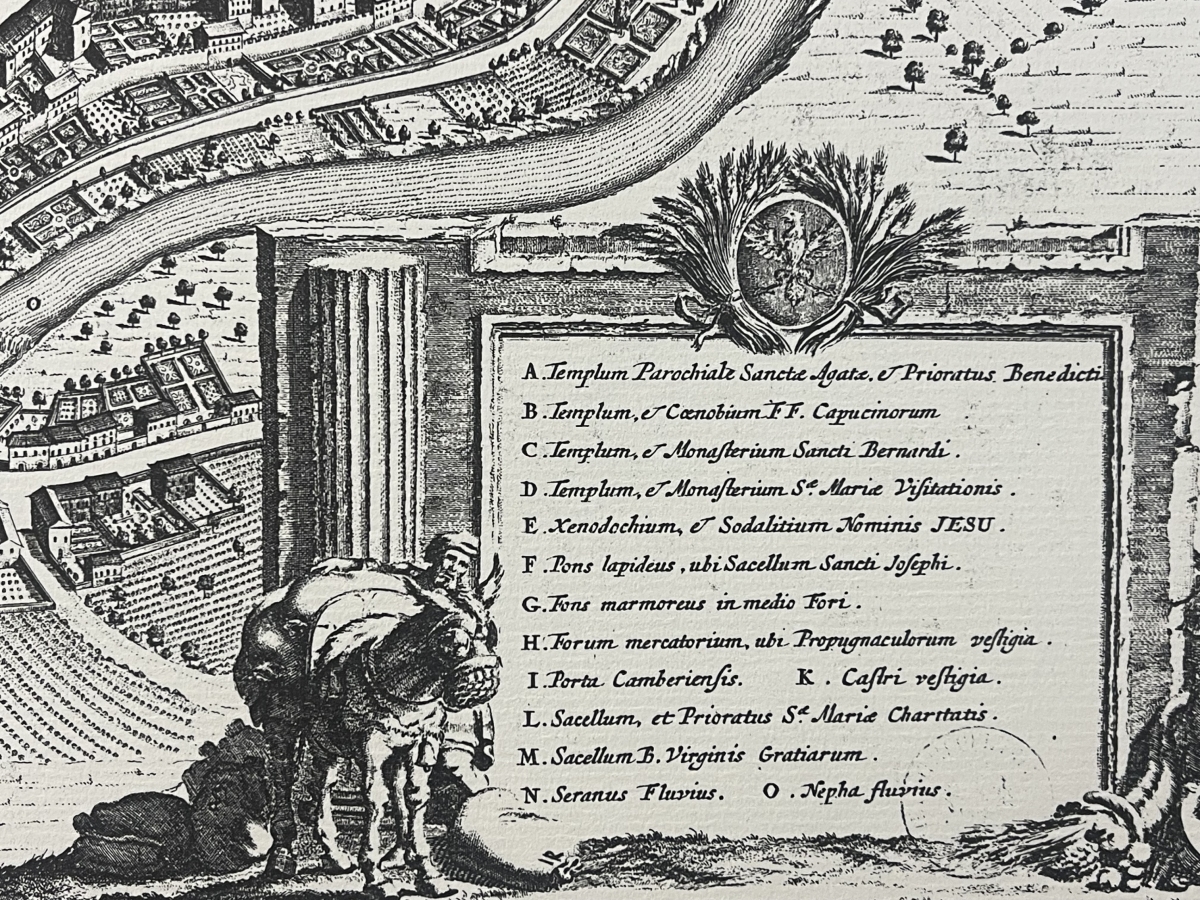 O
A. Templum Parochiale Sanctæ Agatæ, & Prioratus Benedicti
B. Templum, & Cœnobium FF. Capucinorum
C. Templum, & Monasterium Sancti Bernardi.
D. Templum, & Monasterium Sæ. Mariæ Visitationis.
E. Xenodochium, & Sodalitium Nominis JESU.
F. Pons lapideus, ubi Sacellum Sancti Josephi.
G. Fons marmoreus in medio Fori.
H. Forum mercatorium, ubi Propugnaculorum vestigia.
I. Porta Camberiensis. K. Castri vestigia.
L. Sacellum, et Prioratus Sæ Mariæ Charitatis.
M. Sacellum B. Virginis Gratiarum.
N. Seranus Fluvius. O. Nepha fluvius.